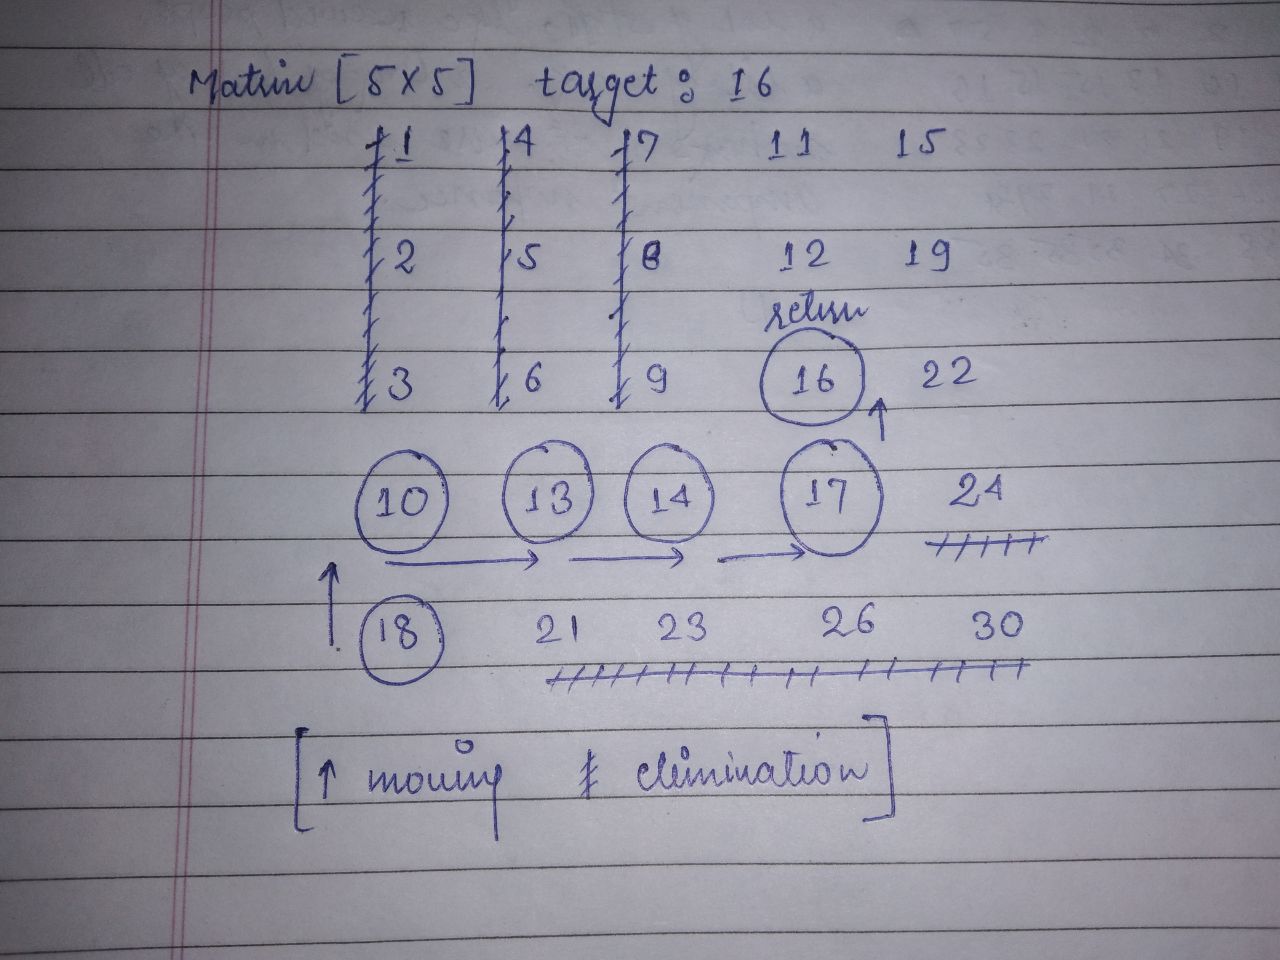 Matrix [5x5] target : 16
1 4 7 11 15
2 5 8 12 19
return
3 6 9 16 22
10 13 14 17 24
18 21 23 26 30
[↑ moving ⫲ elimination]